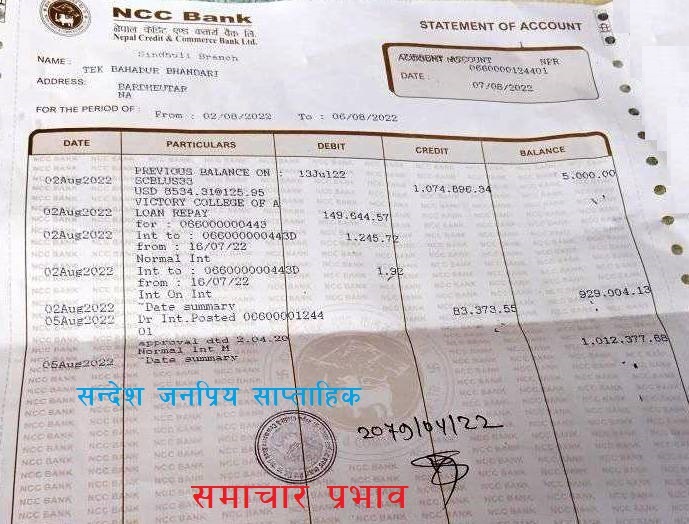 NCC Bank
नेपाल क्रेडिट एण्ड कमर्स बैंक लि.
Nepal Credit & Commerce Bank Ltd.
STATEMENT OF ACCOUNT
Sindhuli Branch
NAME : TEK BAHADUR BHANDARI
ADDRESS: BARDHEUTAR
NA
NPR
0660000124401
DATE : 07/08/2022
FOR THE PERIOD OF : From : 02/08/2022 To : 06/08/2022
DATE PARTICULARS DEBIT CREDIT BALANCE
PREVIOUS BALANCE ON : 13Jul22 5,000.00
02Aug2022 SCBLUS33 1,074,896.34
USD 8534.31@125.95
VICTORY COLLEGE OF A
02Aug2022 LOAN REPAY 149,644.57
for : 066000000443
02Aug2022 Int to : 066000000443D 1,245.72
from : 16/07/22
Normal Int
02Aug2022 Int to : 066000000443D 1.92
from : 16/07/22
Int On Int
02Aug2022 Date summary 929,004.13
05Aug2022 Dr Int.Posted 06600001244 83,373.55
01
approval dtd 2.04.20
Normal Int M
05Aug2022 Date summary 1,012,377.68
सन्देश जनप्रिय साप्ताहिक
2079/04/22
समाचार प्रभाव